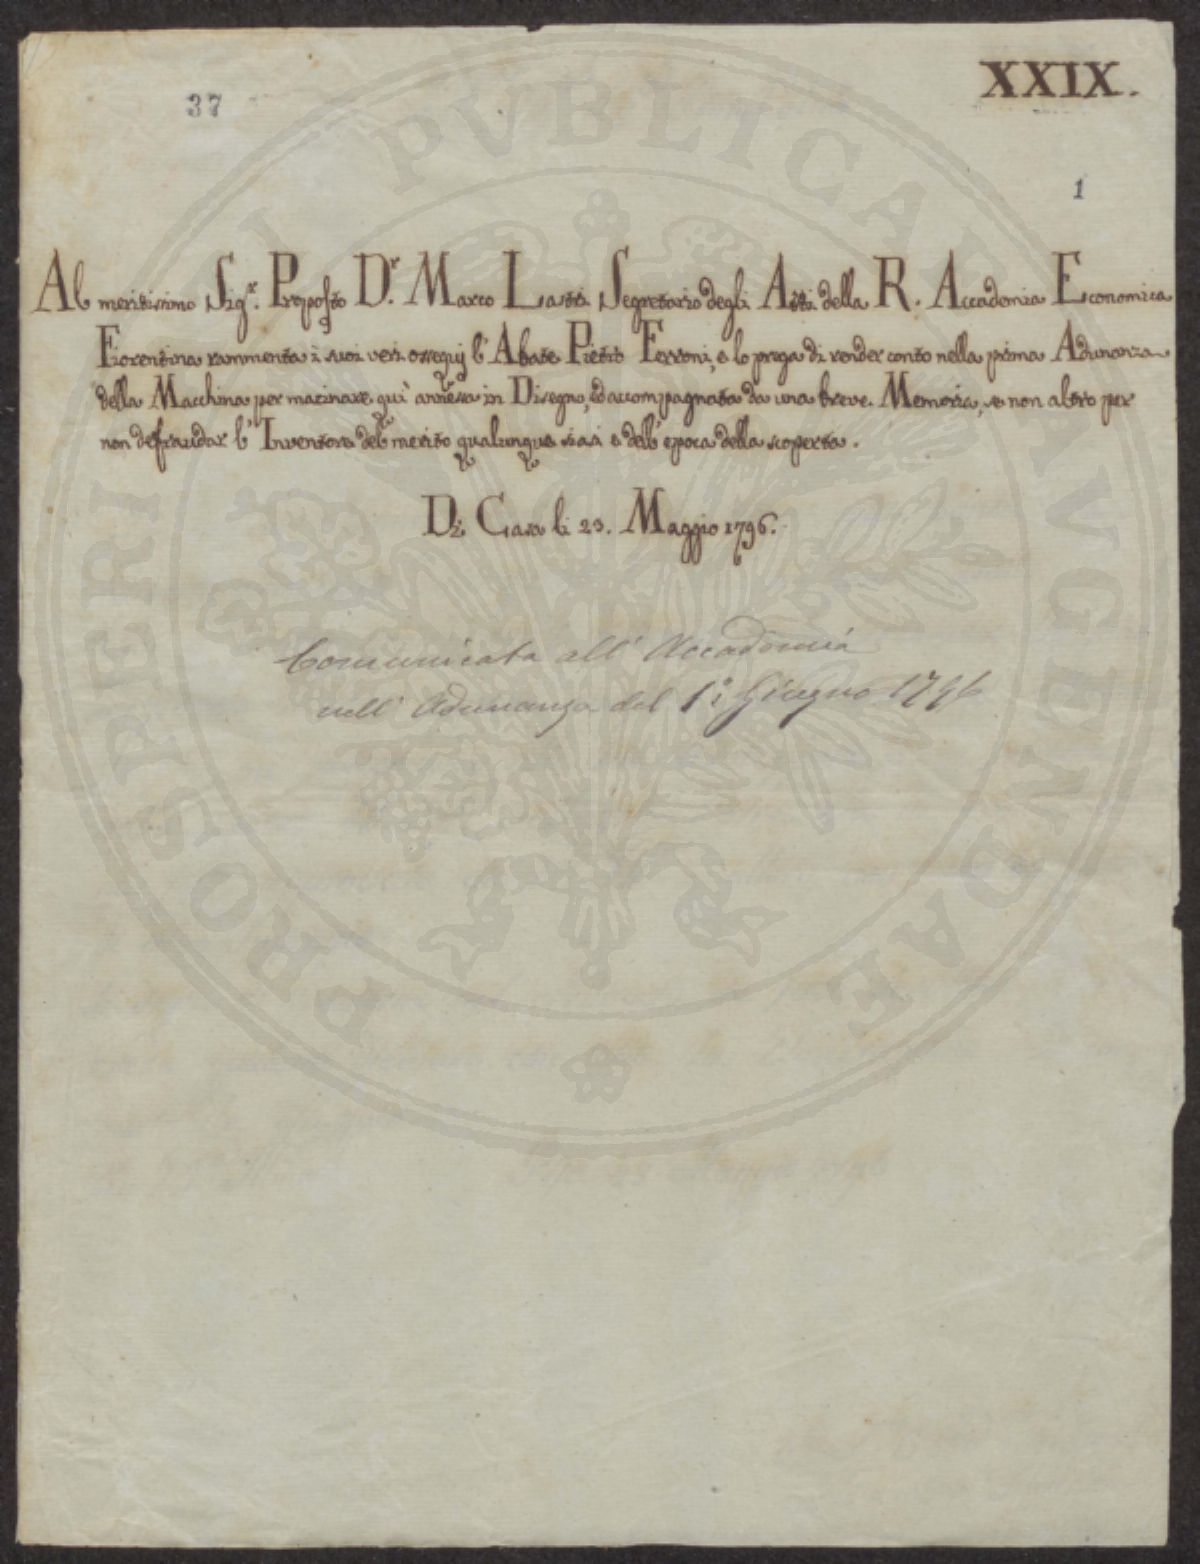 37
XXIX.
1
Al meritissimo Sig.r Proposto D.r Marco Lastri Segretario degli Atti della R. Accademia Economica
Fiorentina rammenta i suoi veri ossequj l'Abate Pietro Ferroni, e lo prega di render conto nella prima Adunanza
della Macchina per macinare quì annessa in Disegno, ed accompagnata da una breve Memoria, se non altro per
non defraudar l'Inventore del merito qualunque siasi e dell'epoca della scoperta.
Di Casa li 29. Maggio 1796.
Comunicata all'Accademia
nell'Adunanza del 1.° Giugno 1796
PROSPERITATI PVBLICAE AVGENDAE